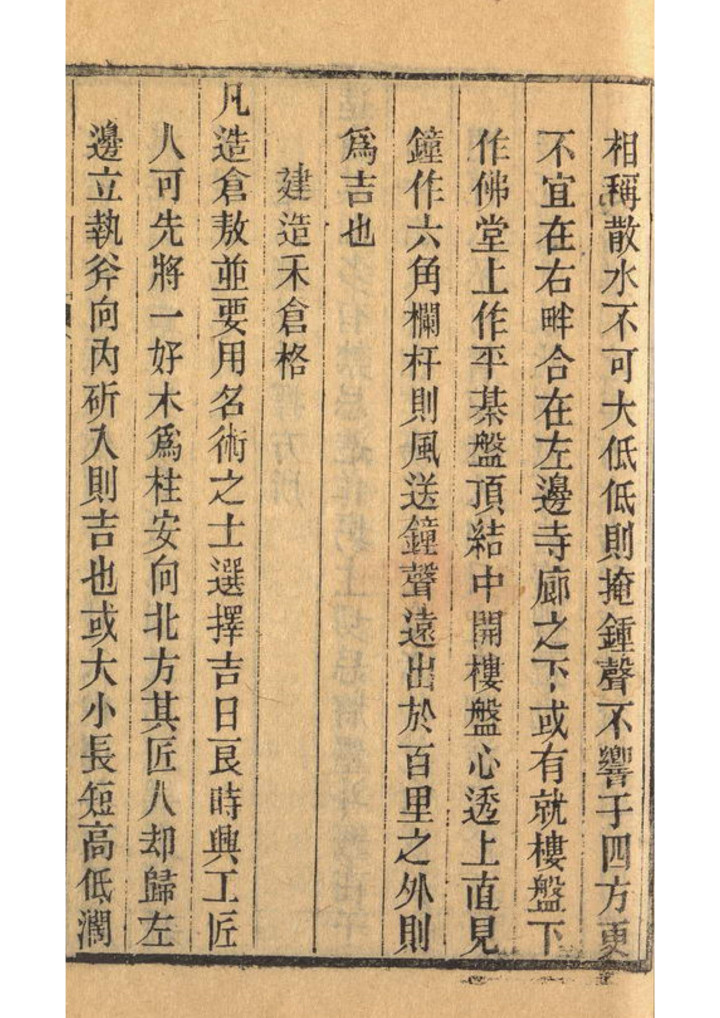 相稱散水不可大低低則掩鍾聲不響于四方更
不宜在右畔合在左邊寺廊之下或有就樓盤下
作佛堂上作平棊盤頂結中開樓盤心透上直見
鐘作六角欄杆則風送鐘聲遠出於百里之外則
爲吉也
建造禾倉格
凡造倉敖並要用名術之士選擇吉日良時興工匠
人可先將一好木爲柱安向北方其匠人却歸左
邊立執斧向內斫入則吉也或大小長短高低濶